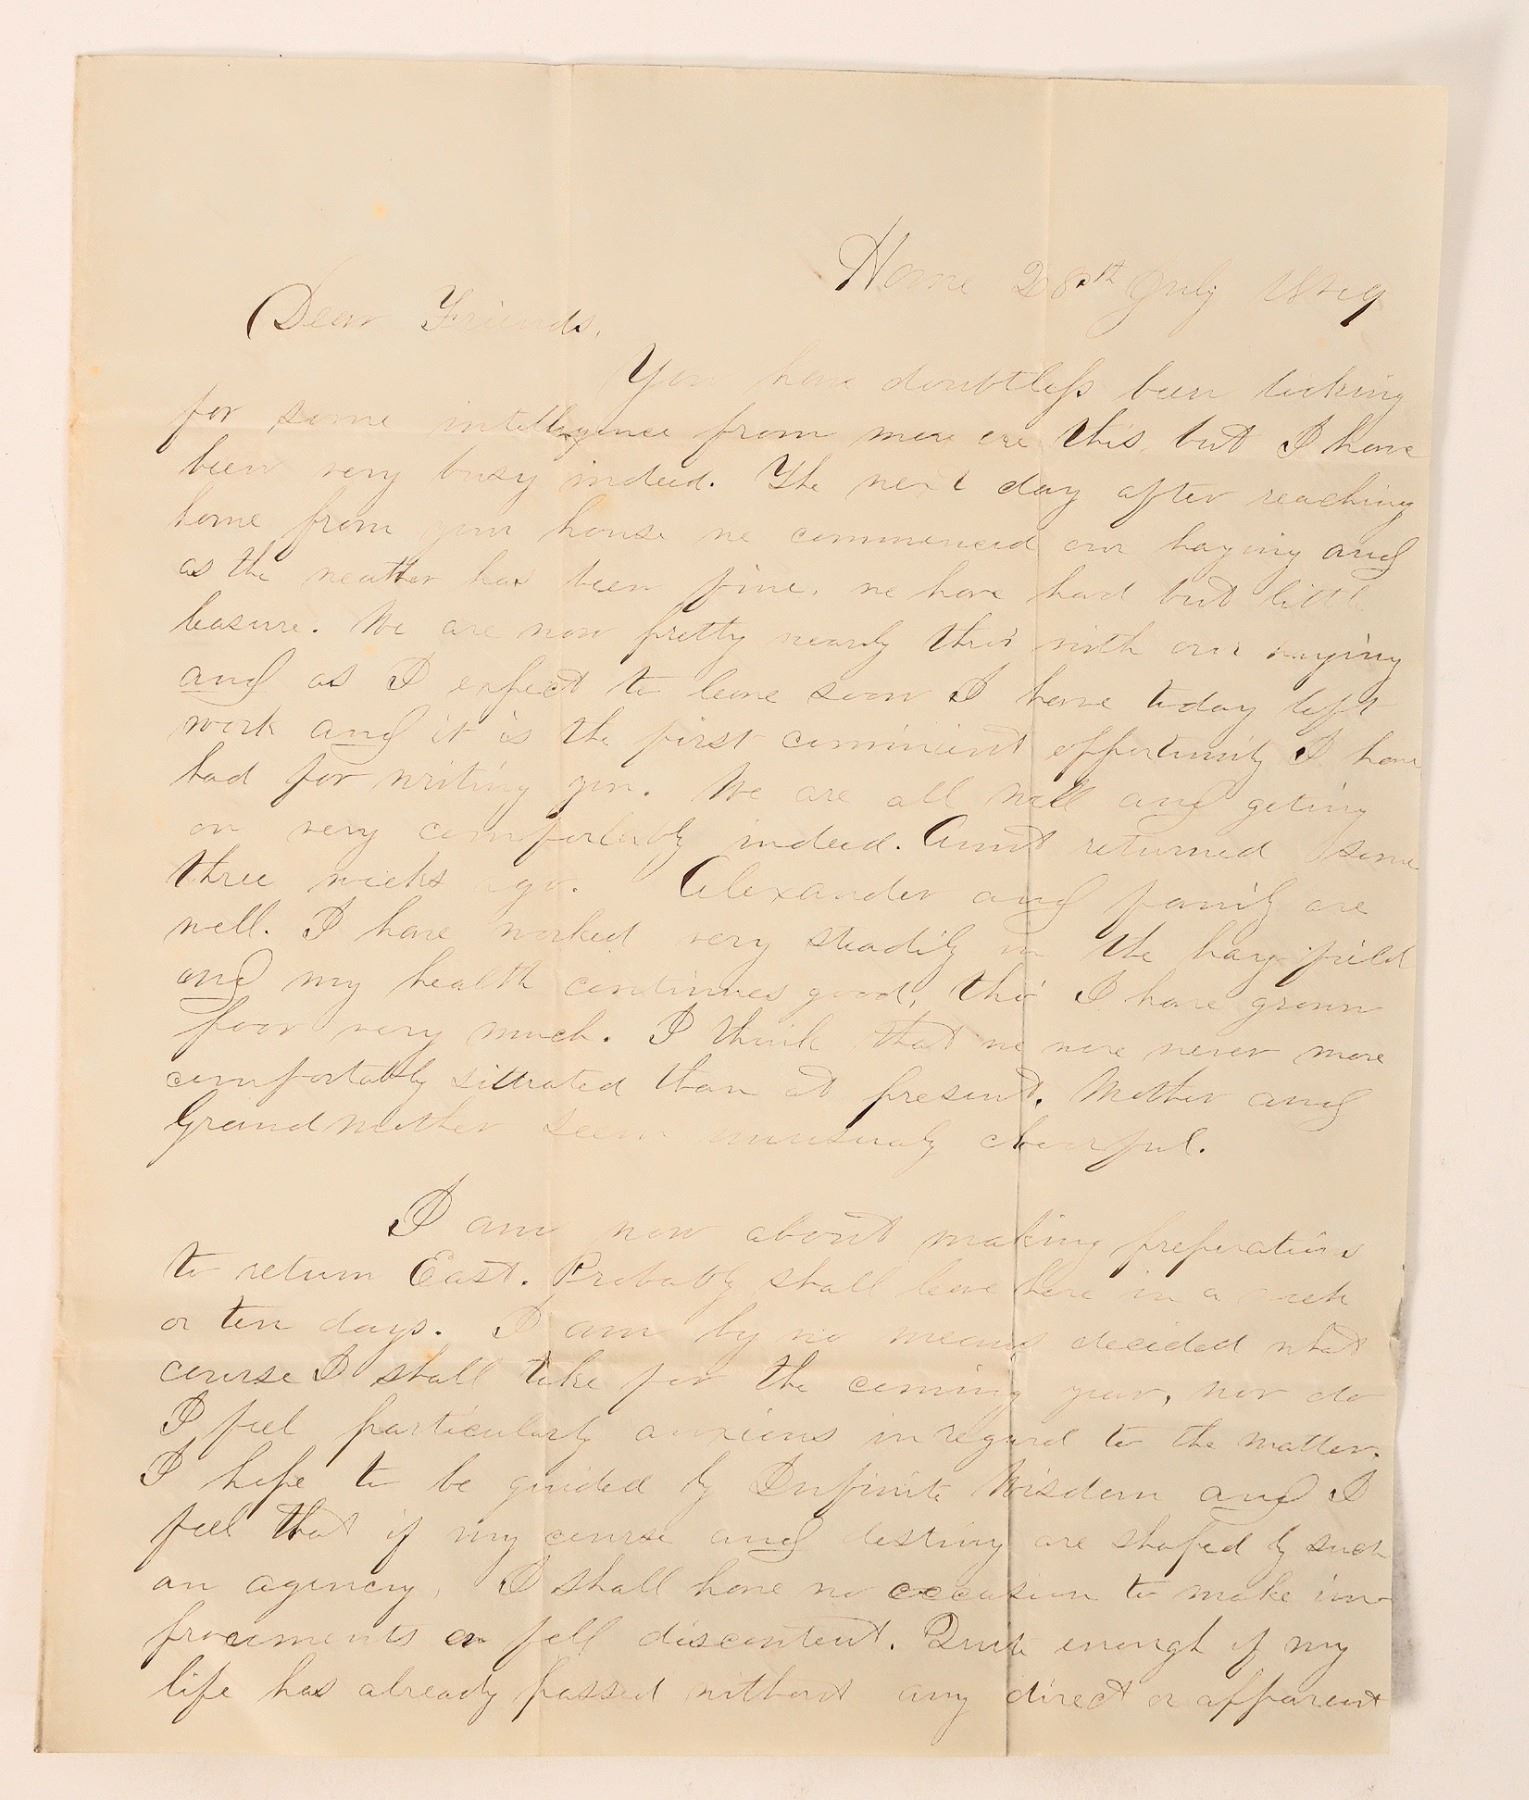 Home 28th July 1849
Dear Friends,
You have doubtless been looking
for some intelligence from mere ere this, but I have
been very busy indeed. The next day after reaching
home from your house we commenced our haying and
as the weather has been fine, we have had but little
leasure. We are now pretty nearly thro' with our haying
and as I expect to leave soon I have today left
work and it is the first convinient opportunity I have
had for writing you. We are all well and geting
on very comfortably indeed. Aunt returned some
three weeks ago. Alexander and family are
well. I have worked very steadily in the hay field
and my health continues good, tho' I have grown
poor very much. I think that we were never more
comfortably situated than at present. Mother and
Grandmother seem unusualy cheerful.
I am now about making preperations
to return East. Probably shall leave here in a week
or ten days. I am by no means decided what
course I shall take for the coming year, nor do
I feel particularly anxious in regard to the matter.
I hope to be guided by Infinite Wisdom and I
feel that if my course and destiny are shaped by such
an agency, I shall have no occasion to make im-
provements or fell discontent. Quite enough of my
life has already passed without any direct or apparent